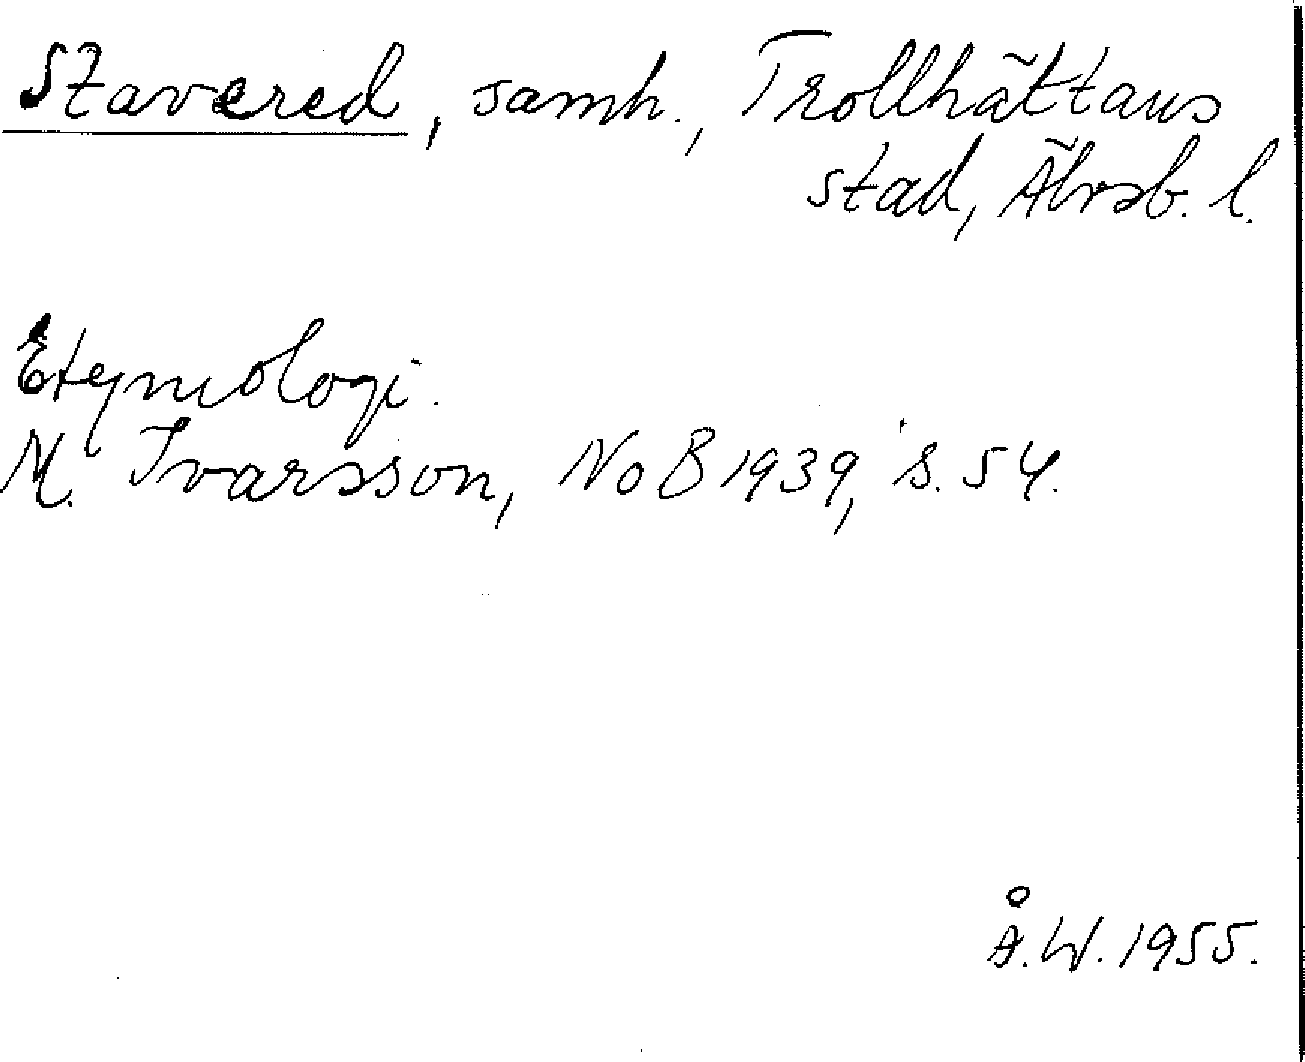 Stavered, samh., Trollhättans
stad, Älvsb. l.
Etymologi.
M. Ivarsson, NoB 1939, s. 54.
Å.W. 1955.